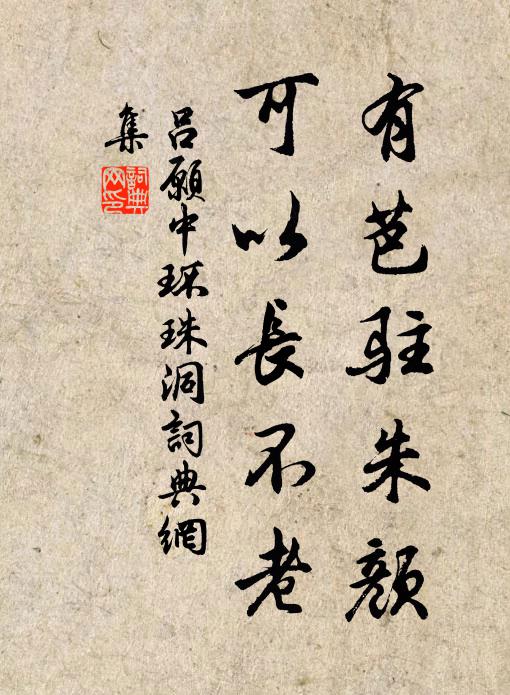 有芭駐朱顏
可以長不老
呂願中环珠洞詞典網
集
詞典
网印